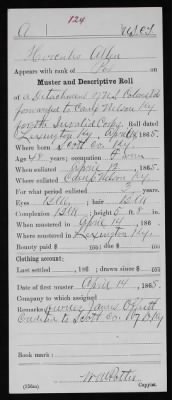 124
A U.S.C.T.
Allen
Appears with rank of Pvt on
Muster and Descriptive Roll
of a Detachment of U.S. Colored
forwarded to Camp Nelson Ky
for the Invalid Corps. Roll dated
Lexington Ky, April 14, 1865.
Where born Scott Co. Ky.
Age y'rs; occupation Farmer
When enlisted April 12, 1865.
Where enlisted Camp Nelson Ky
For what period enlisted years.
Eyes Blk; hair Blk
Complexion Blk; height ft. in.
When mustered in April 14, 186 .
Where mustered in Lexington Ky.
Bounty paid $ 100; due $ 100
Clothing account:
Last settled , 186 ; drawn since $ 100
Date of first muster April 14, 1865.
Company to which assigned
Remarks: James
Credited to Scott Co. Ky
Book mark:
Copyist.